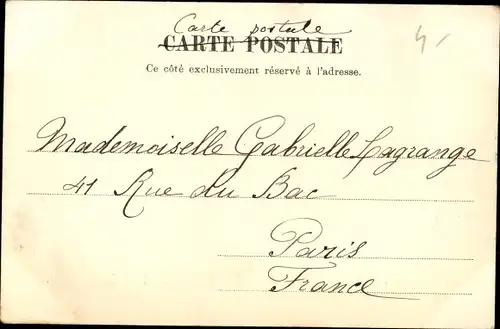 Carte postale
CARTE POSTALE
Ce côté exclusivement réservé à l'adresse.
4-
Mademoiselle Gabrielle Lagrange
41 Rue du Bac
Paris
France